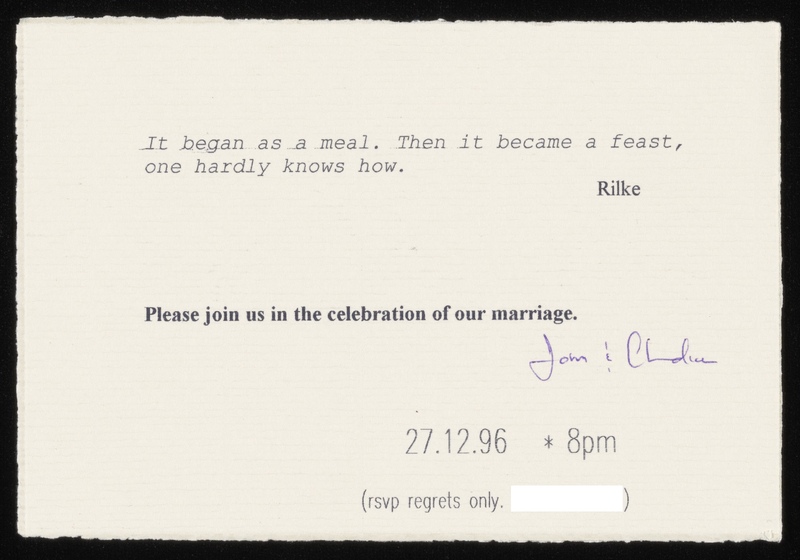 It began as a meal. Then it became a feast,
one hardly knows how.
Rilke
Please join us in the celebration of our marriage.
27.12.96 * 8pm
(rsvp regrets only. )